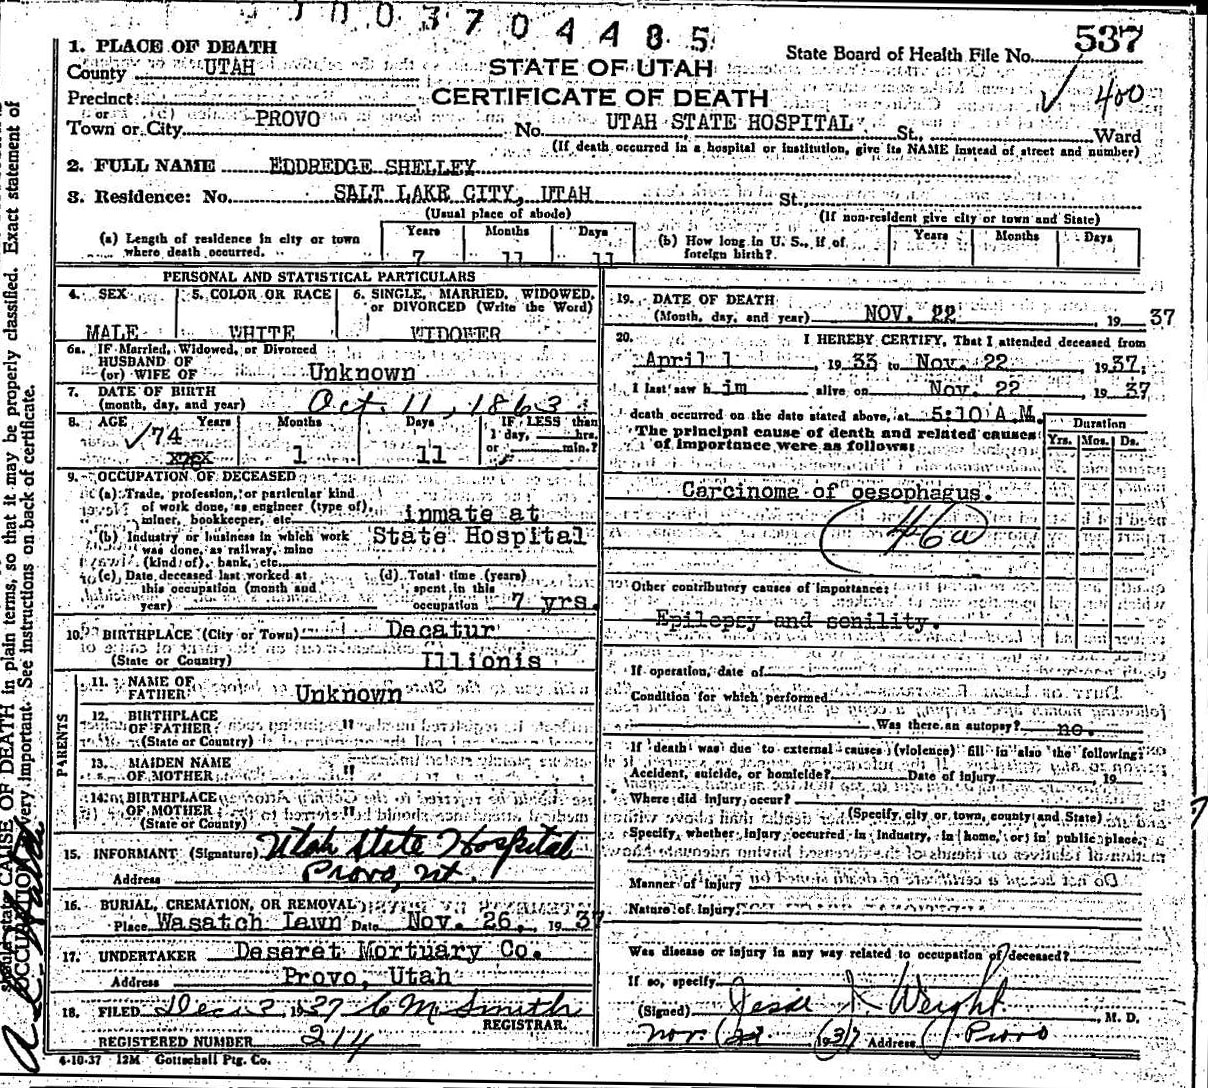 1003704485
537
1. PLACE OF DEATH
State Board of Health File No.
County UTAH
STATE OF UTAH
400
Precinct
CERTIFICATE OF DEATH
or
Town or City PROVO No. UTAH STATE HOSPITAL St., Ward
(If death occurred in a hospital or institution, give its NAME instead of street and number)
2. FULL NAME EDDREDGE SHELLEY
3. Residence: No. SALT LAKE CITY, UTAH St.
(Usual place of abode) (If non-resident give city or town and State)
(a) Length of residence in city or town where death occurred. Years 7 Months 11 Days 11
(b) How long in U. S., if of foreign birth? Years Months Days
PERSONAL AND STATISTICAL PARTICULARS
4. SEX MALE
5. COLOR OR RACE WHITE
6. SINGLE, MARRIED, WIDOWED, or DIVORCED (Write the Word) WIDOWER
6a. IF Married, Widowed, or Divorced
HUSBAND OF
(or) WIFE OF Unknown
7. DATE OF BIRTH
(month, day, and year) Oct. 11, 1863
8. AGE Years 74 Months 1 Days 11
IF LESS than 1 day, hrs. or min.?
9. OCCUPATION OF DECEASED
(a) Trade, profession, or particular kind of work done, as engineer (type of), miner, bookkeeper, etc. inmate at
(b) Industry or business in which work was done, as railway, mine (kind of), bank, etc. State Hospital
(c) Date deceased last worked at this occupation (month and year)
(d) Total time (years) spent in this occupation 7 yrs.
10. BIRTHPLACE (City or Town) Decatur
(State or Country) Illionis
PARENTS
11. NAME OF FATHER Unknown
12. BIRTHPLACE OF FATHER "
(State or Country)
13. MAIDEN NAME OF MOTHER "
14. BIRTHPLACE OF MOTHER "
(State or County)
15. INFORMANT (Signature) Utah State Hospital
Address Provo, Ut.
16. BURIAL, CREMATION, OR REMOVAL
Place Wasatch Lawn Date Nov. 26, 1937
17. UNDERTAKER Deseret Mortuary Co.
Address Provo, Utah
18. FILED Dec 2, 1937 C M Smith
REGISTRAR.
REGISTERED NUMBER 214
4-10-37 12M Gottschall Ptg. Co.
19. DATE OF DEATH
(Month, day, and year) NOV. 22 1937
20. I HEREBY CERTIFY, That I attended deceased from
April 1, 1933 to Nov. 22, 1937,
I last saw h im alive on Nov. 22 1937
death occurred on the date stated above, at 5:10 A.M.
The principal cause of death and related causes of importance were as follows:
Duration
Yrs. Mos. Ds.
Carcinoma of oesophagus.
46a
Other contributory causes of importance:
Epilepsy and senility.
If operation, date of
Condition for which performed
Was there an autopsy? no.
If death was due to external causes (violence) fill in also the following:
Accident, suicide, or homicide? Date of injury 19
Where did injury occur?
(Specify city or town, county and State)
Specify whether injury occurred in industry, in home, or in public place,
Manner of injury
Nature of Injury
Was disease or injury in any way related to occupation of deceased?
If so, specify
(Signed) Jesse J. Weight, M. D.
Nov. 22 1937 Address Provo
should state CAUSE OF DEATH in plain terms, so that it may be properly classified. Exact statement of
OCCUPATION is very important. See instructions on back of certificate.